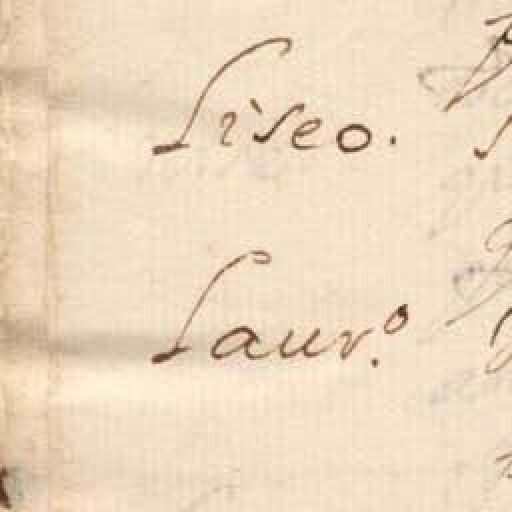 Liseo.
Laur.º